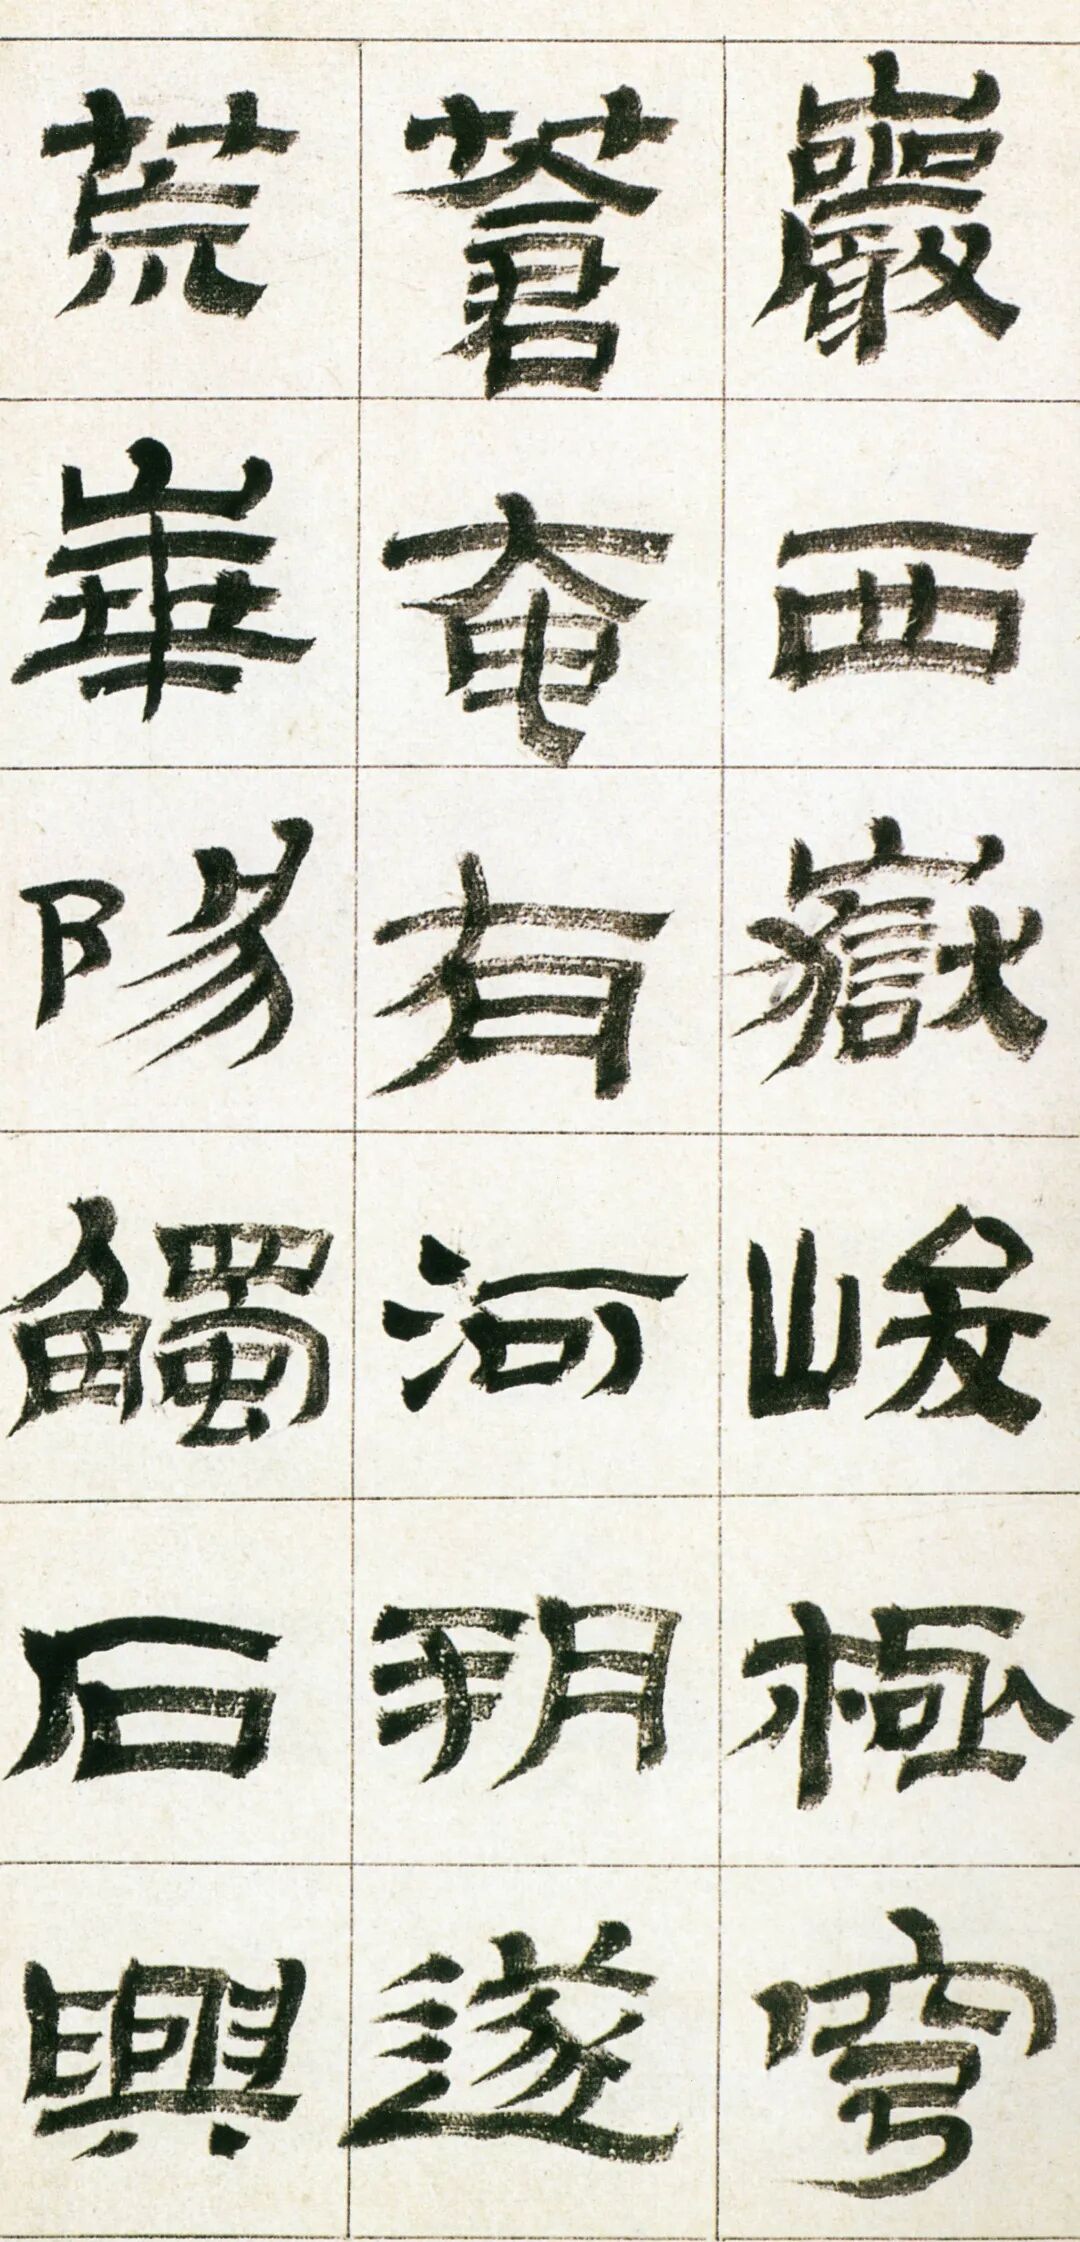 巖西嶽峻極穹
蒼奄有河朔遂
荒華陽觸石興